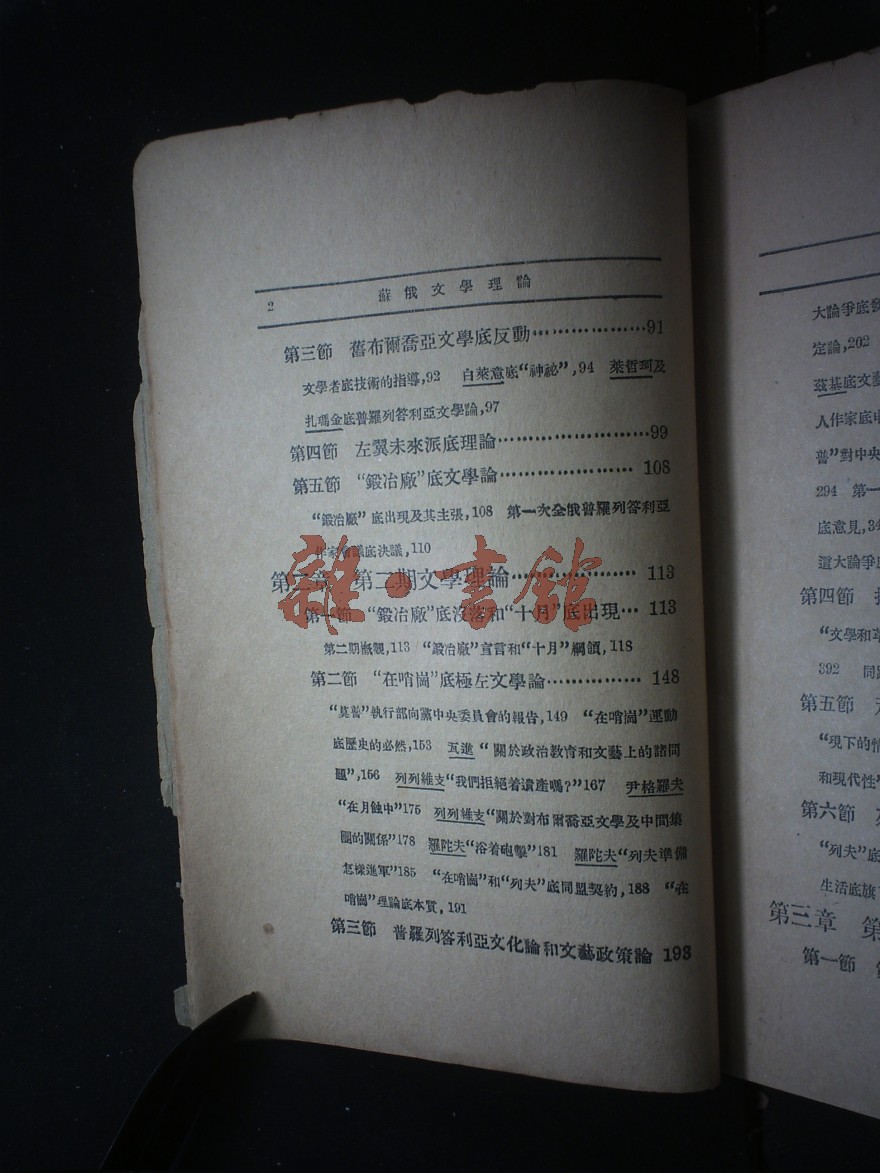 2 蘇俄文學理論
第三節 舊布爾喬亞文學底反動………………91
文學者底技術的指導,92 白萊意底“神祕”,94 萊哲珂及
扎瑪金底普羅列答利亞文學論,97
第四節 左翼未來派底理論………………99
第五節 “鍛冶廠”底文學論……………… 108
“鍛冶廠”底出現及其主張,108 第一次全俄普羅列答利亞
作家會議底決議,110
第二章 第二期文學理論……………… 113
第一節 “鍛冶廠”底沒落和“十月”底出現… 113
第二期概觀,113 “鍛冶廠”宣言和“十月”綱領,118
第二節 “在哨崗”底極左文學論…………… 148
“莫普”執行部向黨中央委員會的報告,149 “在哨崗”運動
底歷史的必然,153 瓦進“關於政治教育和文藝上的諸問
題”,156 列列維支“我們拒絕着遺產嗎?”167 尹格羅夫
“在月蝕中”175 列列維支“關於對布爾喬亞文學及中間集
團的關係”178 羅陀夫“浴着砲擊”181 羅陀夫“列夫準備
怎樣進軍”185 “在哨崗”和“列夫”底同盟契約,188 “在
哨崗”理論底本質,191
第三節 普羅列答利亞文化論和文藝政策論 193
雜·書館
大論爭底發
定論,202
茲基底文藝
人作家底
普”對中央
294 第一
底意見,34
這大論爭底
第四節
“文學和革
392 同路
第五節
“現下的情
和現代性”
第六節
“列夫”底
生活底旗
第三章 第
第一節